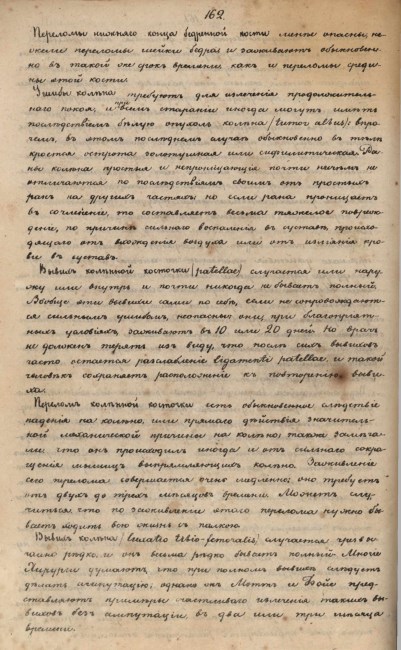 162.
Переломы нижняго конца бедренной кости менѣе опасны, не-
жели переломы шейки бедра, и заживаютъ обыкновен-
но въ такой же срокъ времени какъ и переломы среди-
ны этой кости.
Ушибы колѣна требуютъ для излеченія продолжитель-
наго покоя, и при всемъ стараніи иногда могутъ имѣть
послѣдствіемъ бѣлую опухоль колѣна (tumor albus); впро-
чемъ, въ этомъ послѣднемъ случаѣ обыкновенно въ тѣлѣ
кроется острота золотушная или сифилитическая. Ра-
ны колѣна простыя и непроницающія почти ничѣмъ не
отличаются по послѣдствіямъ своимъ отъ простыхъ
ранъ на другихъ частяхъ; но если рана проницаетъ
въ сочлененіе, то составляетъ весьма тяжелое поврежде-
деніе, по причинѣ сильнаго воспаленія въ суставѣ, происхо-
дящаго отъ вхожденія воздуха или отъ изліянія кро-
ви въ суставъ.
Вывихъ колѣнной косточки (patellae) случается или нару-
жу или внутрь и почти никогда не бываетъ полный.
Вообще эти вывихи сами по себѣ, если не сопровождают-
ся сильнымъ ушибомъ, неопасны; они, при благопріят-
ныхъ условіяхъ, заживаютъ въ 10 или 20 дней. Но врачъ
не долженъ терять изъ виду, что послѣ сихъ вывиховъ
часто остается разслабленіе ligamenti patellae, и такой
человѣкъ сохраняетъ расположеніе къ повторенію выви-
ха.
Переломъ колѣнной косточки есть обыкновенное слѣдствіе
паденія на колѣно, или прямаго дѣйствія значитель-
ной механической причины на колѣно; также замѣча-
ли что онъ происходилъ иногда и отъ сильнаго сокра-
щенія мышицъ выпрямляющихъ колѣно. Заживленіе
сего перелома совершается очень медленно; оно требуетъ
отъ двухъ до трехъ мѣсяцовъ времени. Можетъ слу-
читься что по заживленіи этого перелома нужно бы-
ваетъ ходить всю жизнь съ палкою.
Вывихъ колѣна (luxatio tibio-femoralis) случается чрезвы-
чайно рѣдко, и онъ весьма рѣдко бываетъ полный. Многіе
Хирурги думаютъ, что при полномъ вывихѣ слѣдуетъ
дѣлать ампутацію, однако жъ Моттъ и Бойе пред-
ставляютъ примѣры счастливаго излеченія такихъ вы-
виховъ безъ ампутаціи въ два или три мѣсяца
времени.